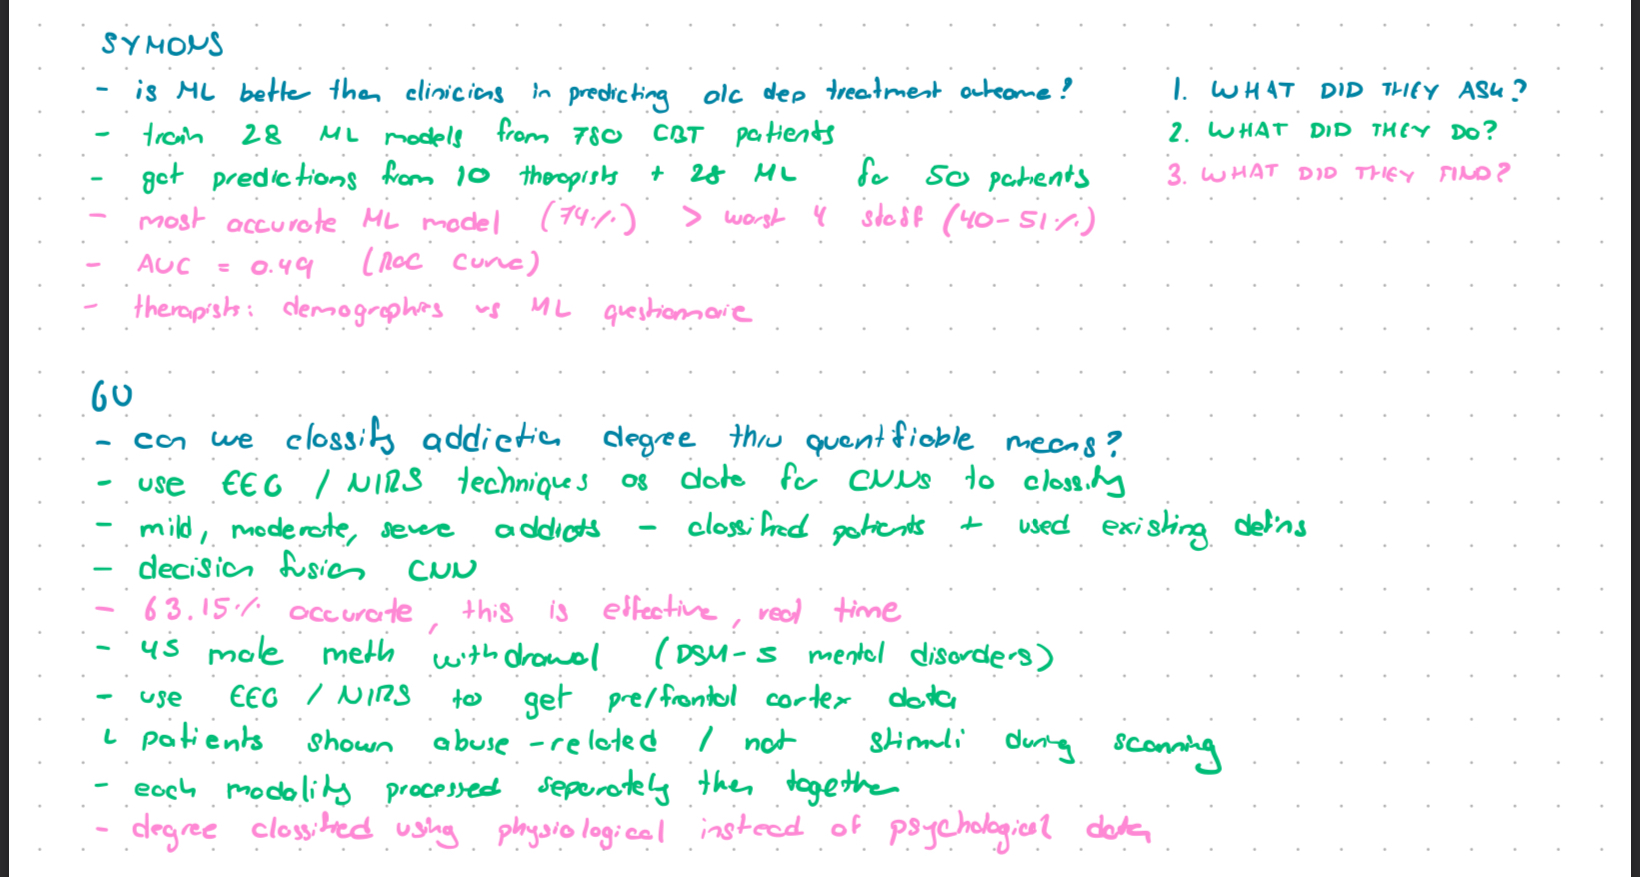 SYMONS
- is ML better than clinicians in predicting alc dep treatment outcome?
- train 28 ML models from 780 CBT patients
- got predictions from 10 therapists + 28 ML for 50 patients
- most accurate ML model (74%) > worst 4 staff (40-51%)
- AUC = 0.49 (ROC curve)
- therapists: demographics vs ML questionnaire
1. WHAT DID THEY ASK?
2. WHAT DID THEY DO?
3. WHAT DID THEY FIND?
GU
- can we classify addiction degree thru quantifiable means?
- use EEG / NIRS techniques as data for CNNs to classify
- mild, moderate, severe addicts - classified patients + used existing defins
- decision fusion CNN
- 63.15% accurate, this is effective, real time
- 45 male meth withdrawal (DSM-5 mental disorders)
- use EEG / NIRS to get pre/frontal cortex data
↳ patients shown abuse-related / not stimuli during scanning
- each modality processed separately then together
- degree classified using physiological instead of psychological data